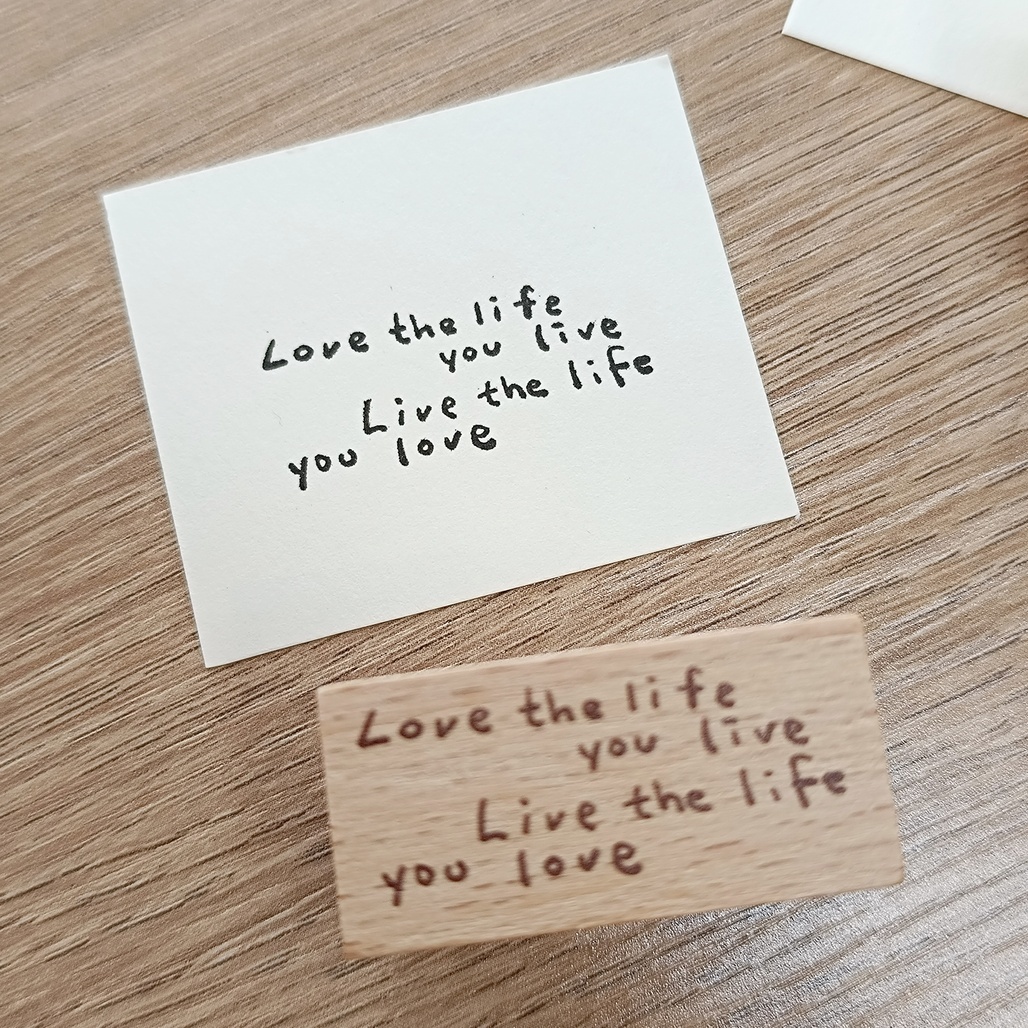 Love the life
you live
Live the life
you love
Love the life
you live
Live the life
you love